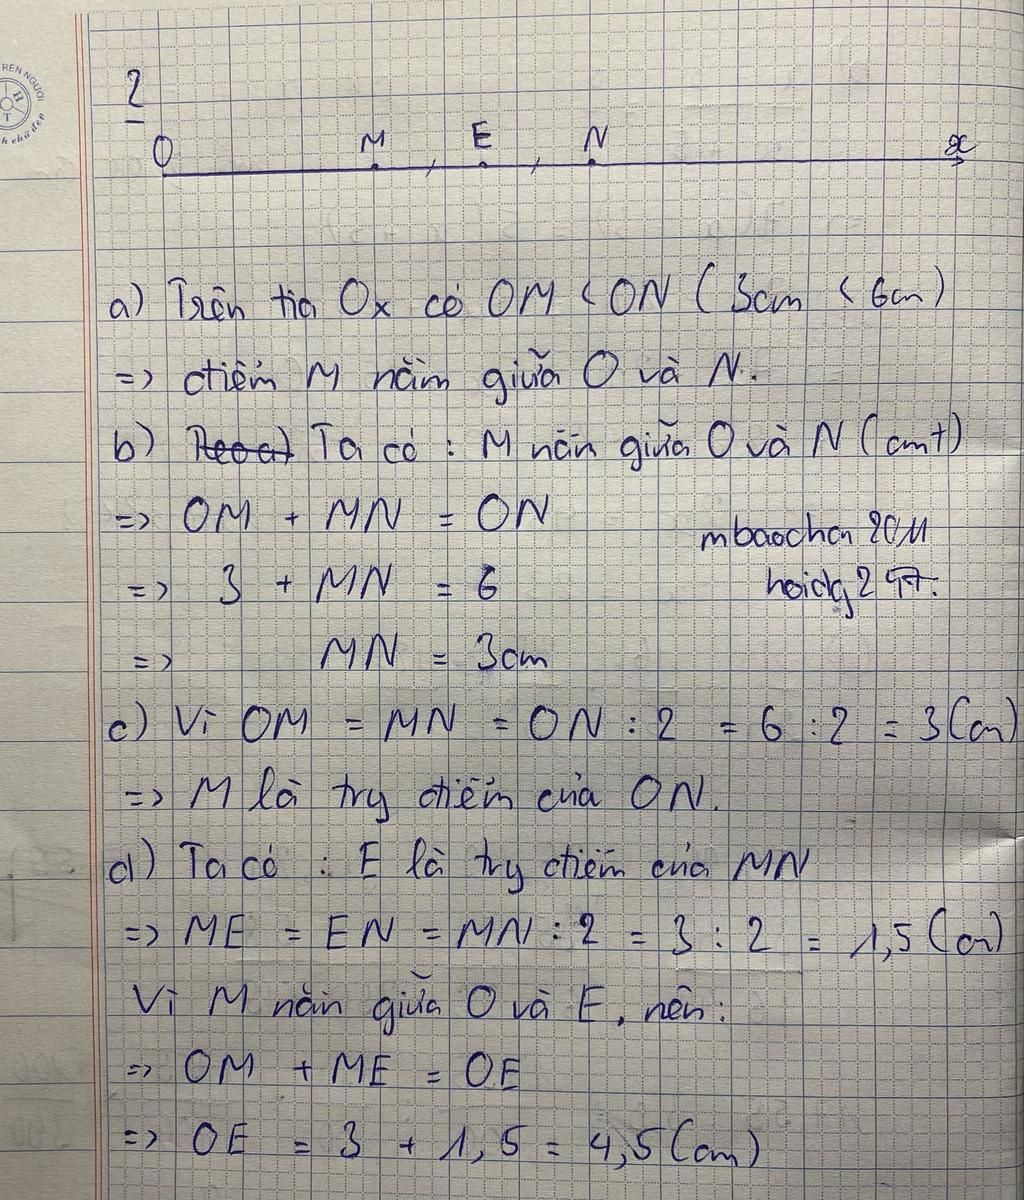 RÈN NGƯỜI
H
T
h chữ đẹp
2
O M E N x
a) Trên tia Ox có OM < ON (3cm < 6cm)
=> điểm M nằm giữa O và N.
b) Ta có : M nằm giữa O và N (cmt)
=> OM + MN = ON
mbaochan 2011
=> 3 + MN = 6
hoidg247.
=> MN = 3cm
c) Vì OM = MN = ON : 2 = 6 : 2 = 3(cm)
=> M là trg điểm của ON.
d) Ta có : E là trg điểm của MN
=> ME = EN = MN : 2 = 3 : 2 = 1,5 (cm)
Vì M nằm giữa O và E, nên:
=> OM + ME = OE
=> OE = 3 + 1,5 = 4,5 (cm)